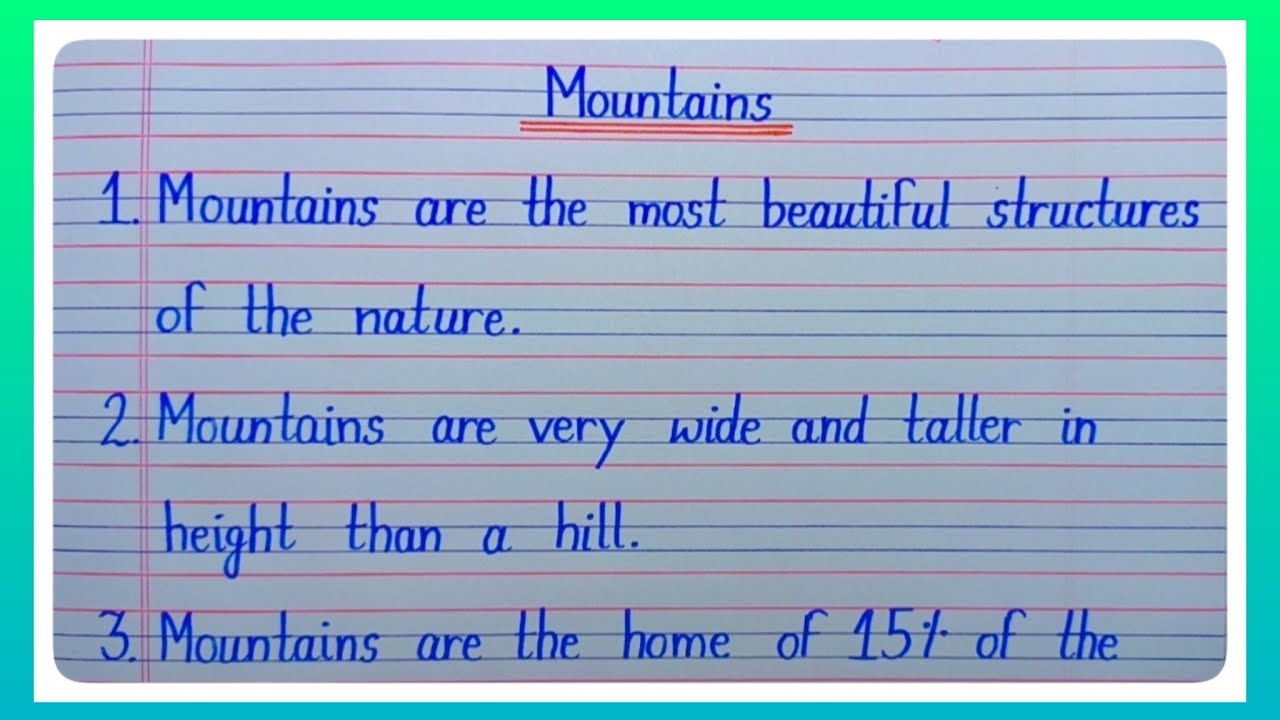 Mountains
1. Mountains are the most beautiful structures
of the nature.
2. Mountains are very wide and taller in
height than a hill.
3. Mountains are the home of 15% of the